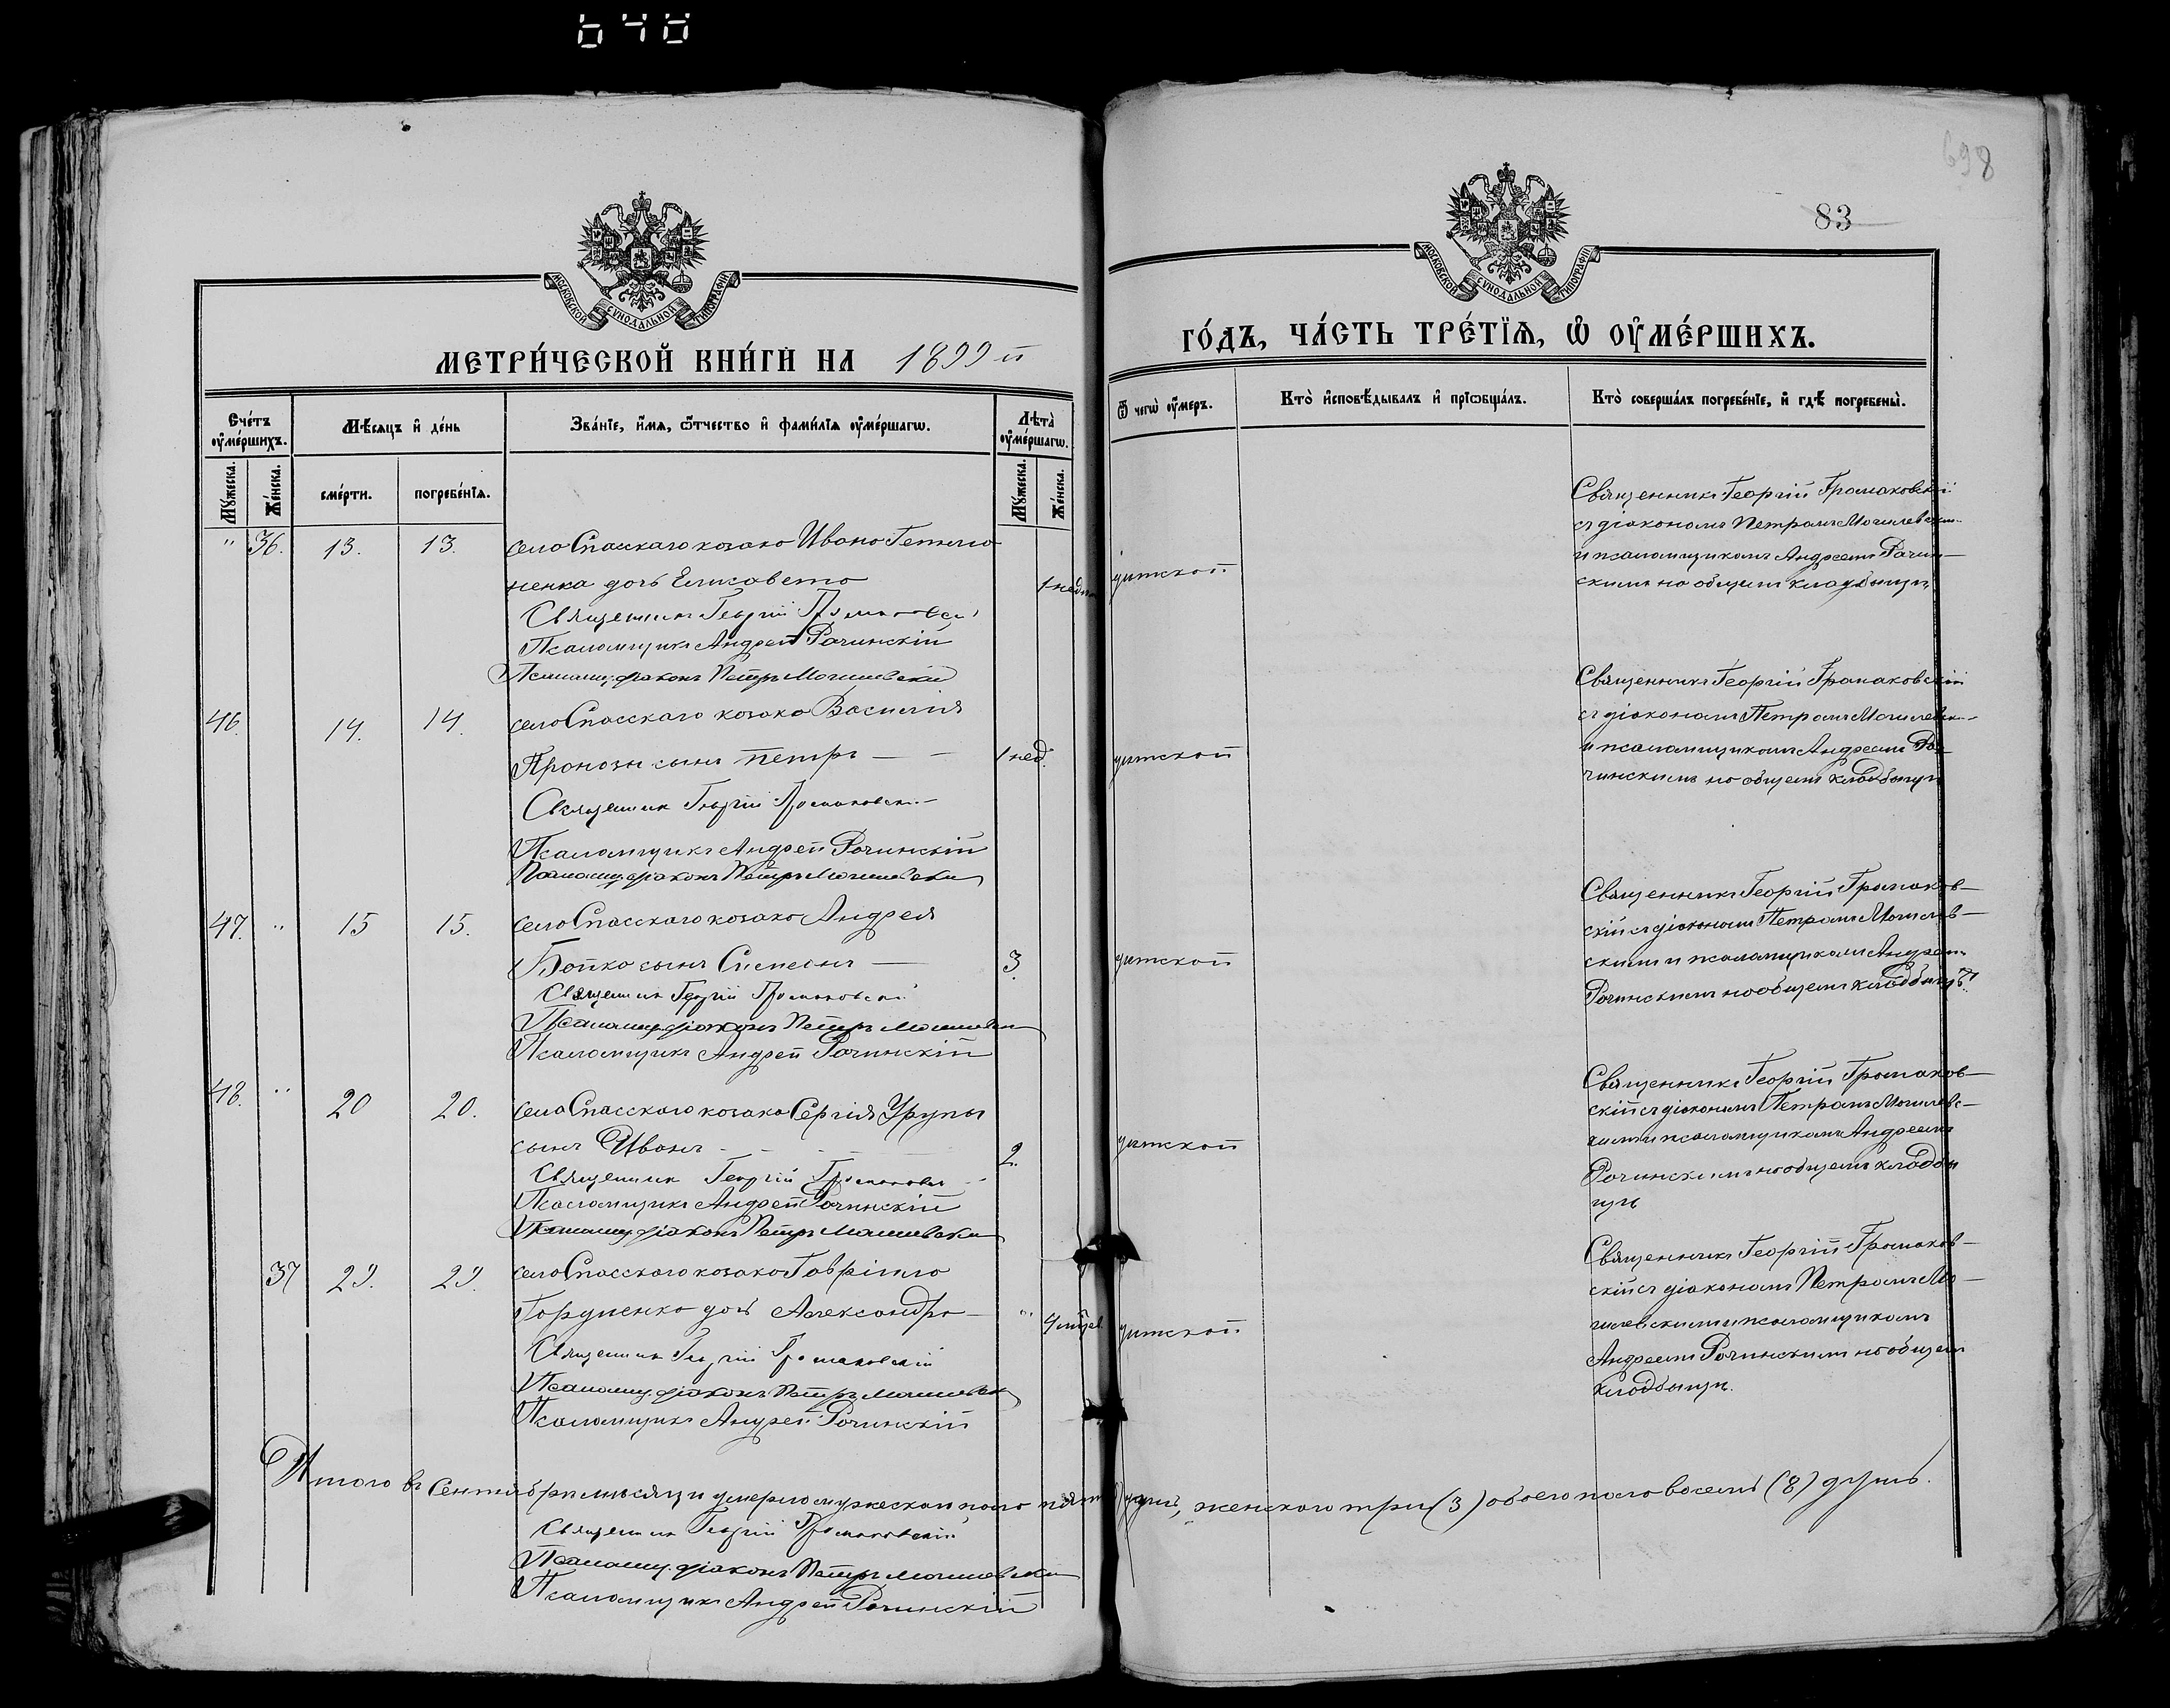 698
83
МОСКОВСКОЙ СУНОДАЛЬНОЙ ТИПОГРАФІИ
МОСКОВСКОЙ СУНОДАЛЬНОЙ ТИПОГРАФІИ
МЕТРИ́ЧЕСКОЙ КНИ́ГИ НА 1899 й
ГО́ДЪ, ЧА́СТЬ ТРЕ́ТЇѦ, Ѡ҆ ОУ҆МЕ́РШИХЪ.
Сче́тъ оу҆ме́ршихъ.
Мѣ́сяцъ и҆ де́нь
Зва́нїе, и҆́мѧ, ѻ҆́тчество и҆ фами́лїѧ оу҆ме́ршагѡ.
Лѣта̀ оу҆ме́ршагѡ.
Ѿ чегѡ̀ оу҆́меръ.
Кто̀ и҆сповѣ́дывалъ и҆ прїѡбща́лъ.
Кто̀ соверша́лъ погребе́нїе, и҆ гдѣ̀ погребены̀.
Мꙋ́жеска.
Же́нска.
сме́рти.
погребе́нїѧ.
Мꙋ́жеска.
Же́нска.
" 36. 13. 13. села Спасскаго козака Ивана
ненка дочь Елисавета 1 нед дѣтской
Священникъ Георгій Громаковскій
Псаломщикъ Андрей Рачинскій
Псаломщ. діаконъ Петръ Могилевскій
Священникъ Георгій Громаковскій
съ діакономъ Петромъ Могилевским
и псаломщикомъ Андреемъ Рачин-
скимъ на общемъ кладбищѣ
46. 14. 14. села Спасскаго козака Василія
сынъ Петръ — 1 нед. дѣтской
Священникъ Георгій Громаковскій
Псаломщикъ Андрей Рачинскій
Псаломщ. діаконъ Петръ Могилевскій
Священникъ Георгій Громаковскій
съ діакономъ Петромъ Могилевск
и псаломщикомъ Андреемъ Ра-
чинскимъ на общемъ кладбищѣ
47. " 15 15. села Спасскаго козака Андрея
Бойко сынъ Симеонъ — 3. дѣтской
Священникъ Георгій Громаковскій
Псаломщ. діаконъ Петръ Могилевскій
Псаломщикъ Андрей Рачинскій
Священникъ Георгій Громаков-
скій съ діакономъ Петромъ Могилев-
скимъ и псаломщикомъ Андреем
Рачинскимъ на общемъ кладбищѣ
48. " 20 20. села Спасскаго козака Сергія Урупы
сынъ Иванъ 2. дѣтской
Священникъ Георгій Громаковскій
Псаломщикъ Андрей Рачинскій
Псаломщ. діаконъ Петръ Могилевскій
Священникъ Георгій Громаков-
скій съ діакономъ Петромъ Могилевс-
кимъ и псаломщикомъ Андреемъ
Рачинскимъ на общемъ кладби
щѣ
37 29. 29. села Спасскаго козака Гавріила
Гордіенка дочь Александра — " 4 мѣсяц. дѣтской
Священникъ Георгій Громаковскій
Псаломщ. діаконъ Петръ Могилевскій
Псаломщикъ Андрей Рачинскій
Священникъ Георгій Громаков-
скій съ діакономъ Петромъ Мо-
гилевскимъ и псаломщикомъ
Андреемъ Рачинскимъ на общемъ
кладбищѣ.
Итого въ Сентябрѣ мѣсяцѣ умерло мужескаго пола пять душъ, женскаго три (3) обоего пола восемь (8) душъ.
Священникъ Георгій Громаковскій
Псаломщ. діаконъ Петръ Могилевскій
Псаломщикъ Андрей Рачинскій